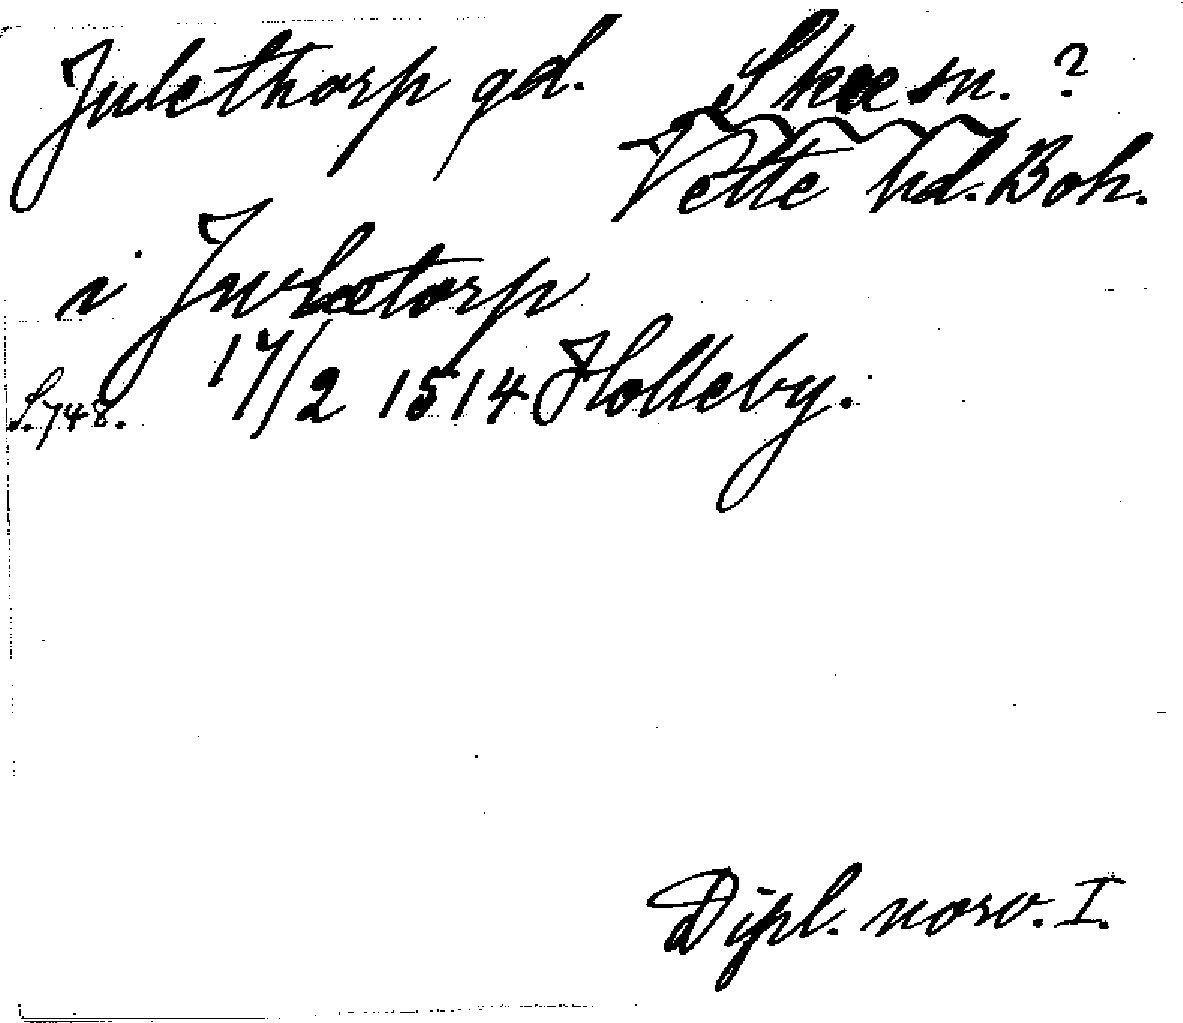 Julethorp gd. Skee sn. ?
Vette hd. Boh.
i Jwlætorp
S. 748. 17/2 1514 Holleby.
Dipl. norv. I.